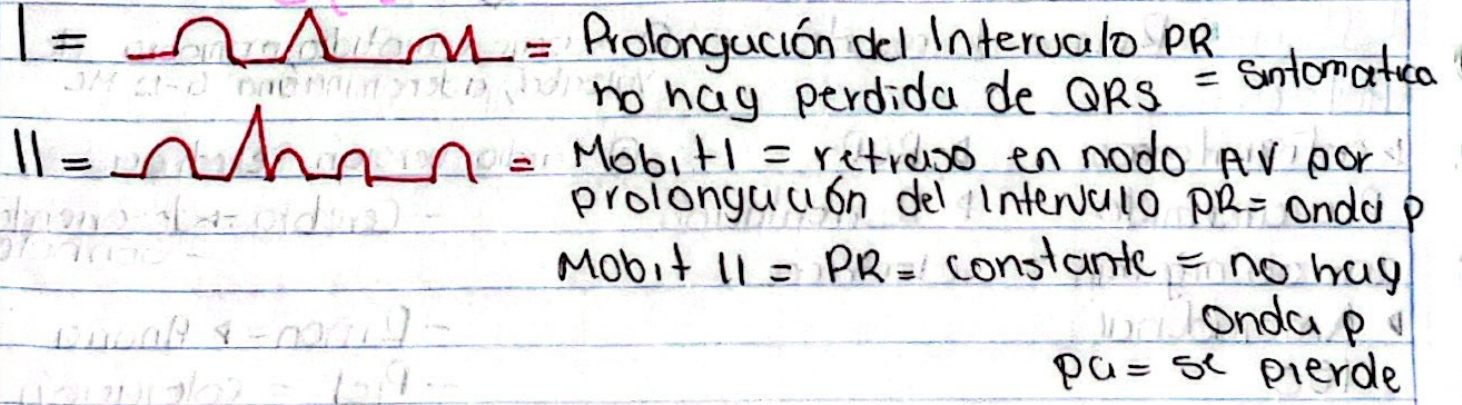 I = = Prolongación del Intervalo PR
no hay perdida de QRS = sintomatica
II = = Mobit I = retraso en nodo AV por
prolongación del intervalo PR = onda p
Mobit II = PR = constante = no hay
onda p
pa = se pierde